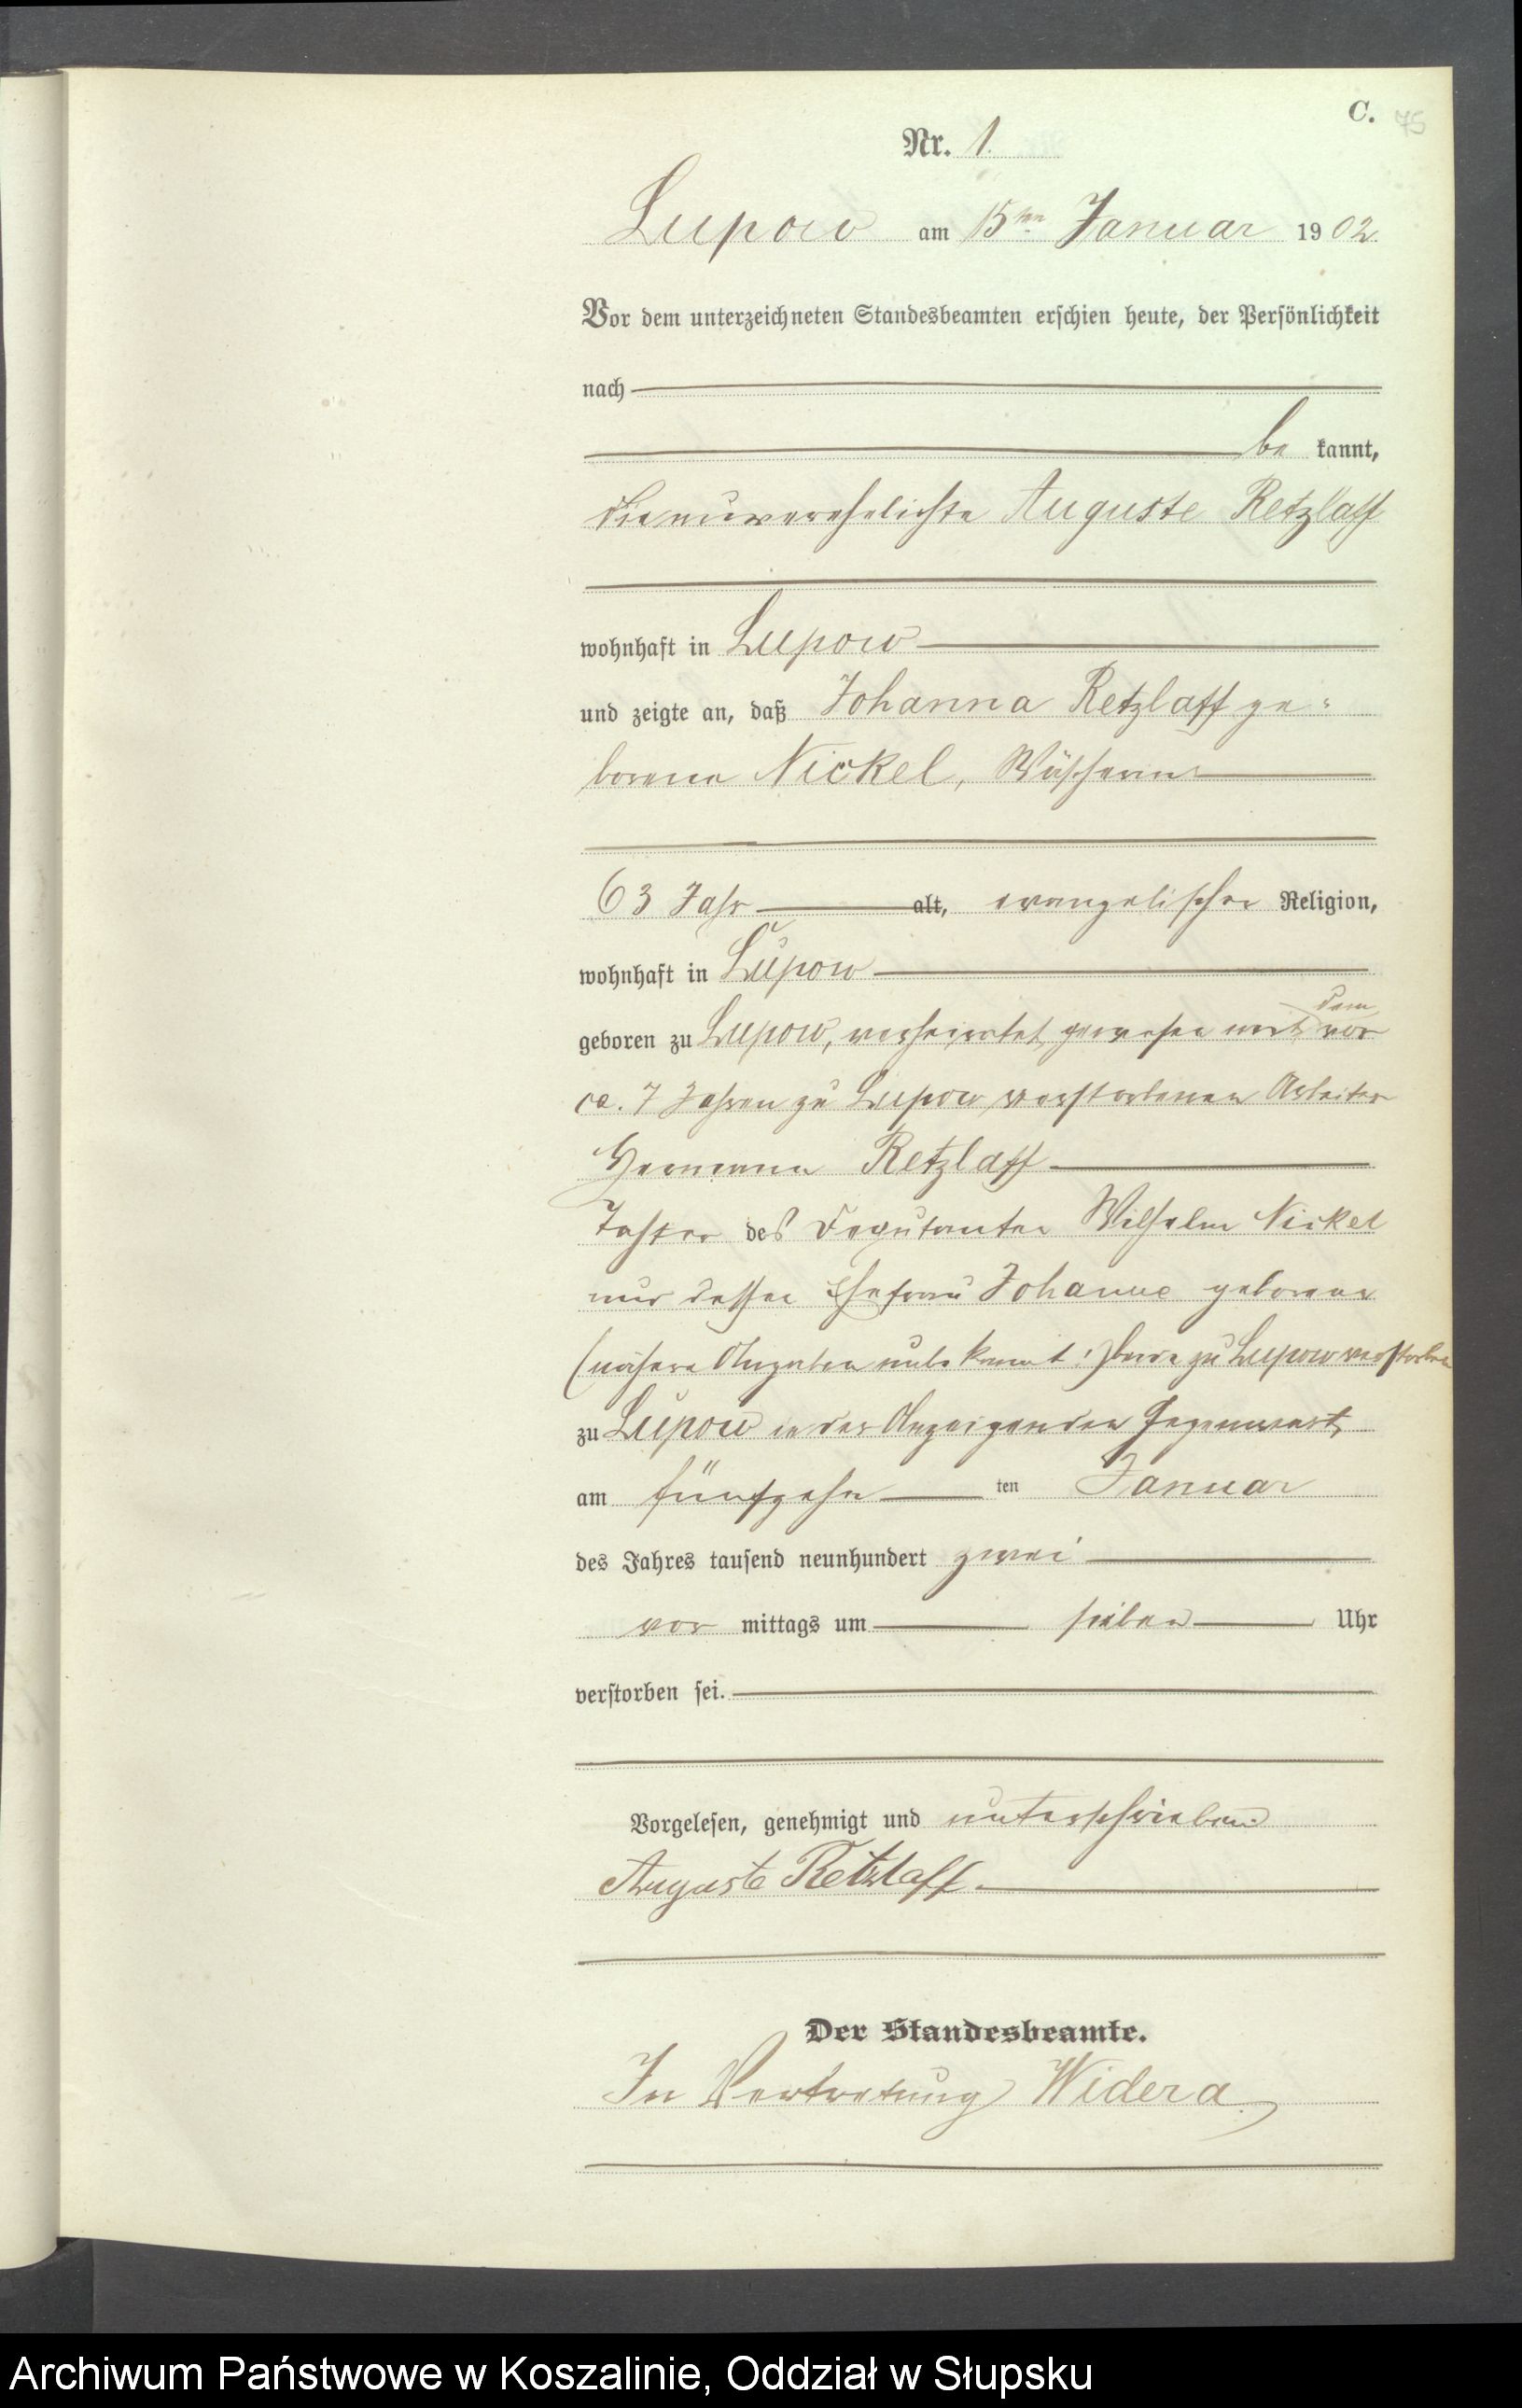 C. 75
Nr. 1.
Lupow am 15ten Januar 1902.
Vor dem unterzeichneten Standesbeamten erschien heute, der Persönlichkeit
nach
be kannt,
die unverehelichte Auguste Retzlaff
wohnhaft in Lupow
und zeigte an, daß Johanna Retzlaff ge=
borene Nickel, Wäscherin
63 Jahr alt, evangelischer Religion,
wohnhaft in Lupow
dem
geboren zu Lupow, verheiratet gewesen mit vor
ca. 7 Jahren zu Lupow verstorbenen Arbeiter
Hermann Retzlaff
Tochter des Deputanten Wilhelm Nickel
und dessen Ehefrau Johanne geborene
(nähere Angaben unbekannt!) beide zu Lupow verstorben
zu Lupow in der Anzeigenden Gegenwart,
am fünfzehn ten Januar
des Jahres tausend neunhundert zwei
vor mittags um sieben Uhr
verstorben sei.
Vorgelesen, genehmigt und unterschrieben
Auguste Retzlaff.
Der Standesbeamte.
In Vertretung Widera
Archiwum Państwowe w Koszalinie, Oddział w Słupsku